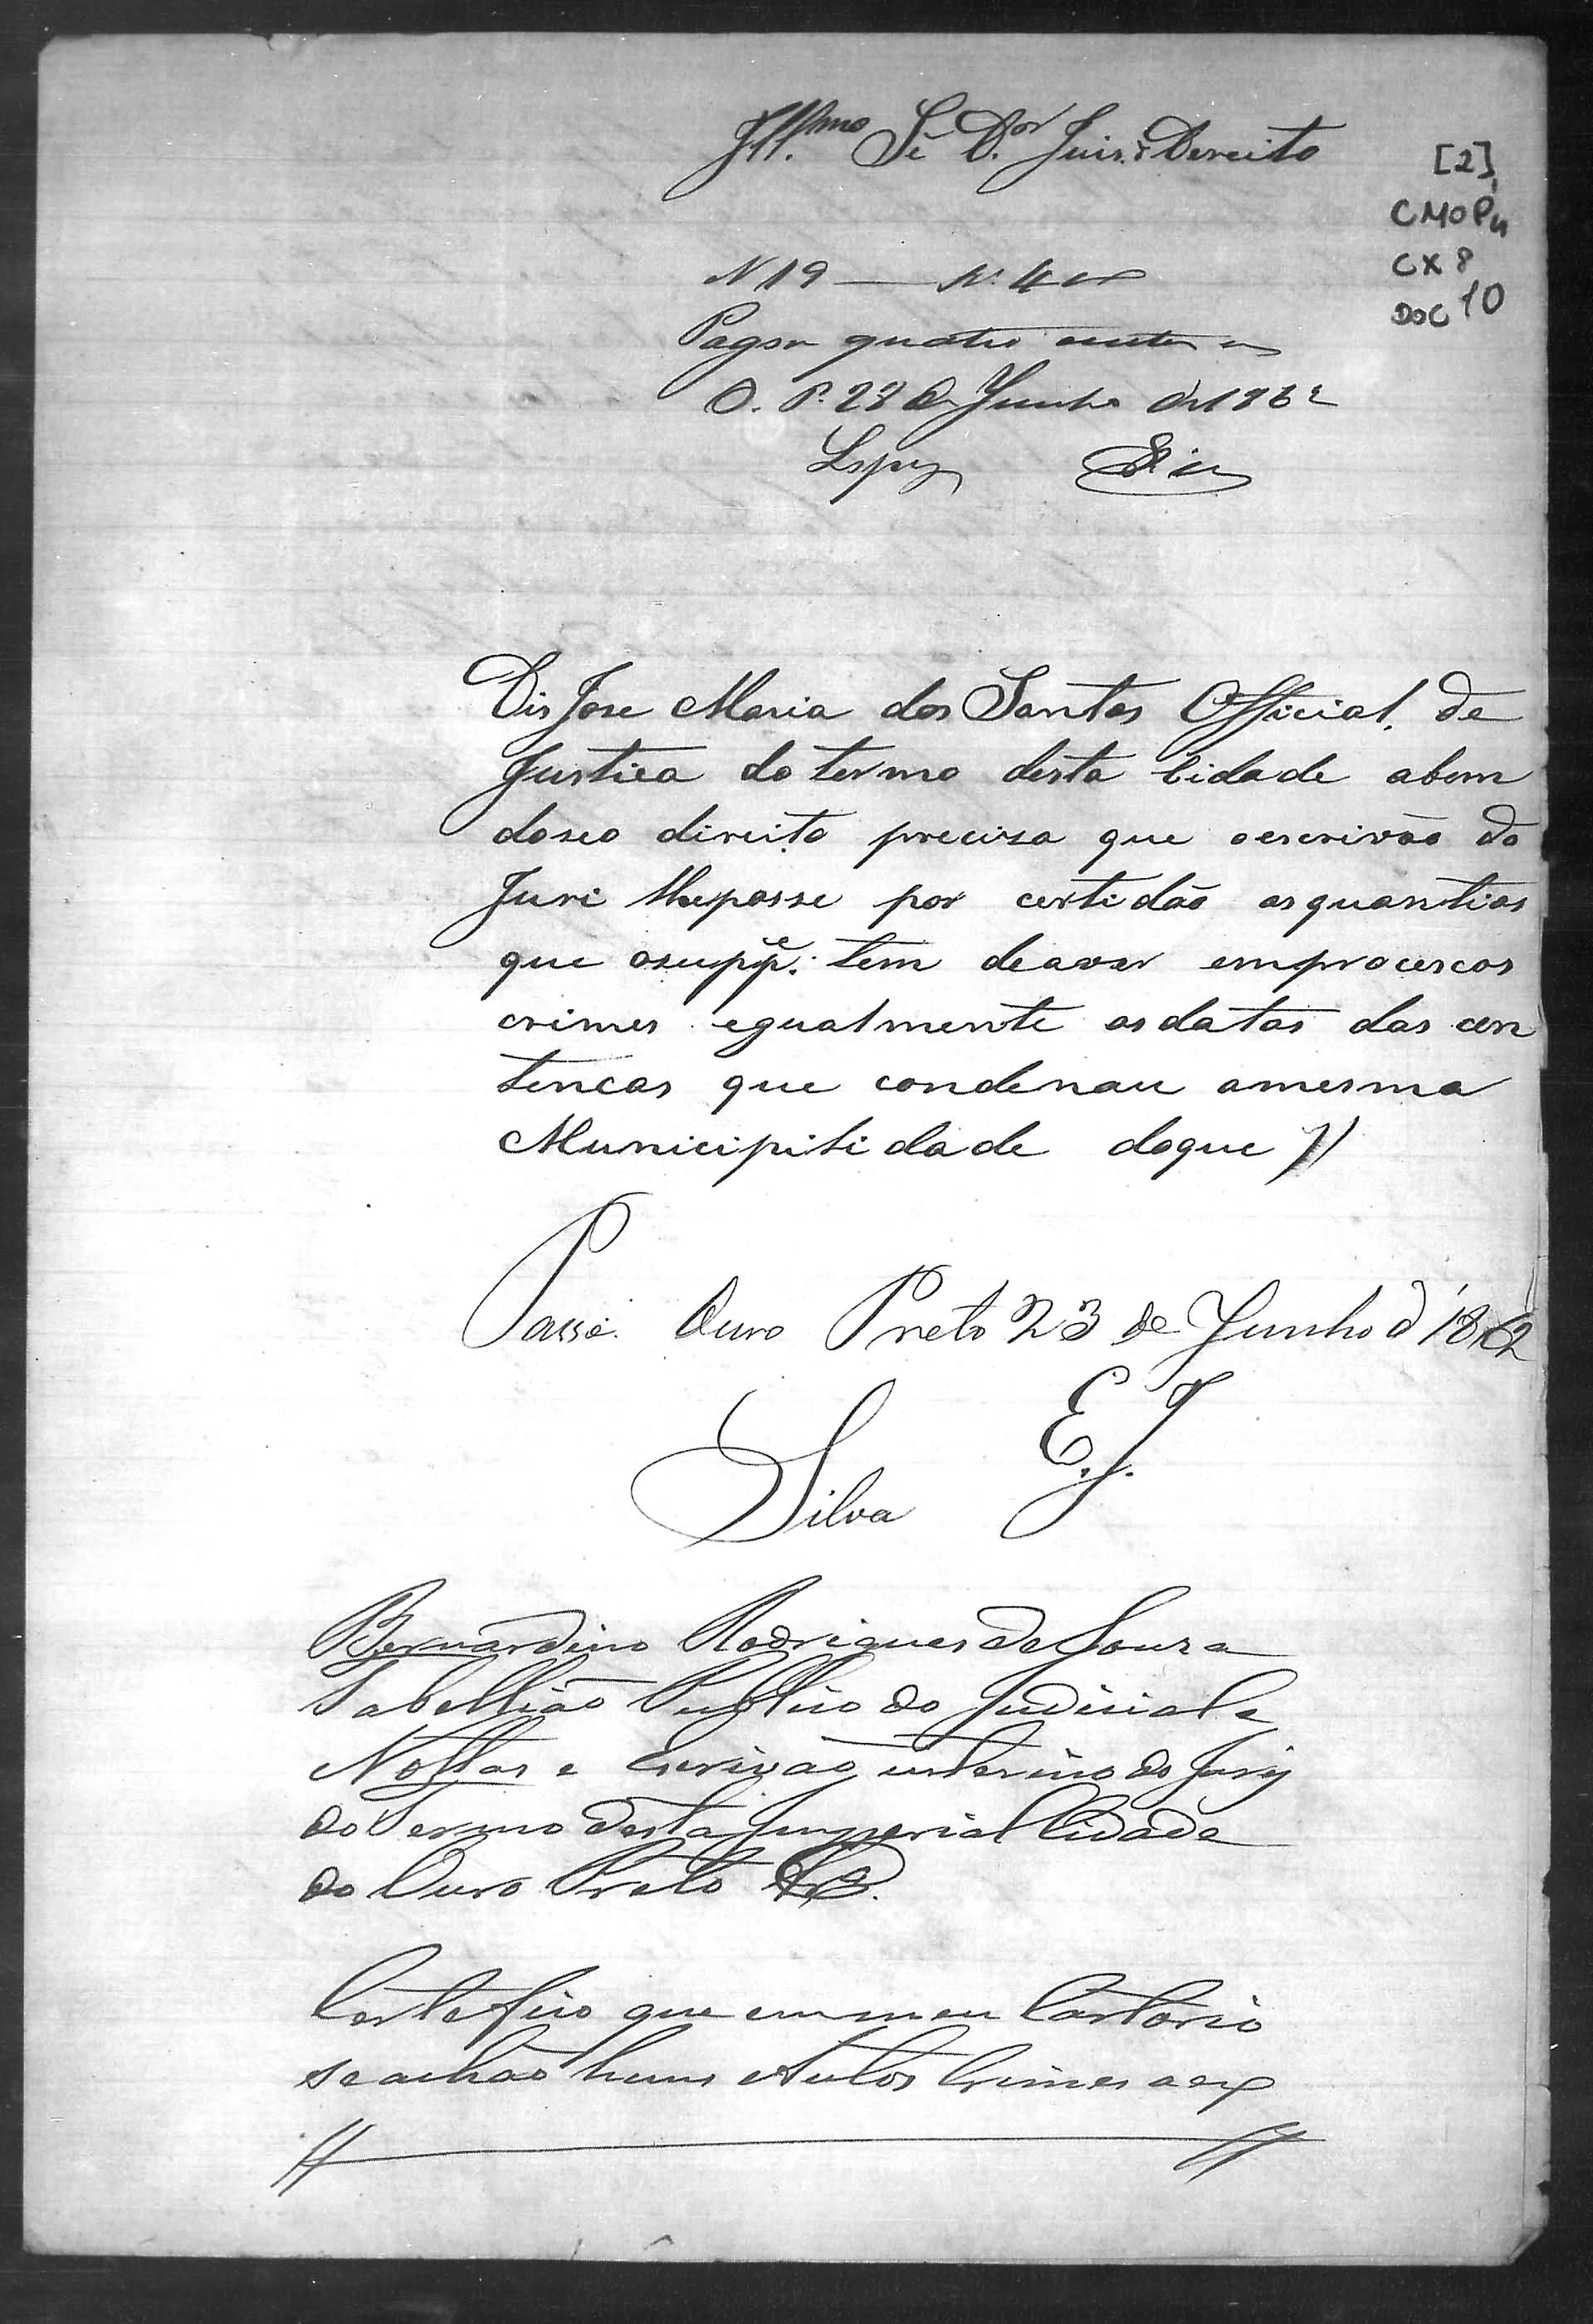 Ill.mo Sr. D.or Juis. d Dereito
[2]
CMOP
CX 8
DOC 10
N 19 — N. 400
Pagou quatro centos rs
O. P. 28 de Junho de 1862
Lopes
Dis Jose Maria dos Santos Official. de
Justica do termo desta Cidade abem
doseo direito preciza que oescrivão do
Juri lhepasse por certidão asquantias
que osupp.e tem deaver emprocescos
crimes egualmente asdatas das cen
tencas que condenau amesma
Municipilidade doque //
Passe. Ouro Preto 23 de Junho d 1862
E. J.
Silva
Bernardino Rodrigues de Souza
Tabellião Publico do Judicial e
Nottas e Escrivão interino do Jury
do Termo desta Imperial Cidade
do Ouro Preto &a.
Certefico que em meu Cartorio
se achão huns Autos Crimes a ex